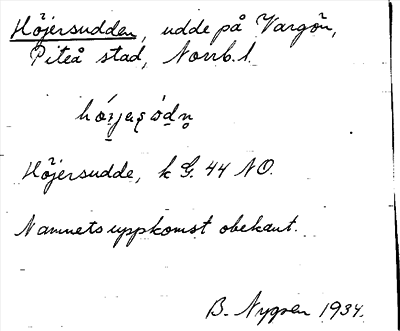 Höjersudden, udde på Vargön,
Piteå stad, Norrb. l.
Höjersudde, k G. 44 NO.
Namnets uppkomst obekant.
B. Nygren 1934.